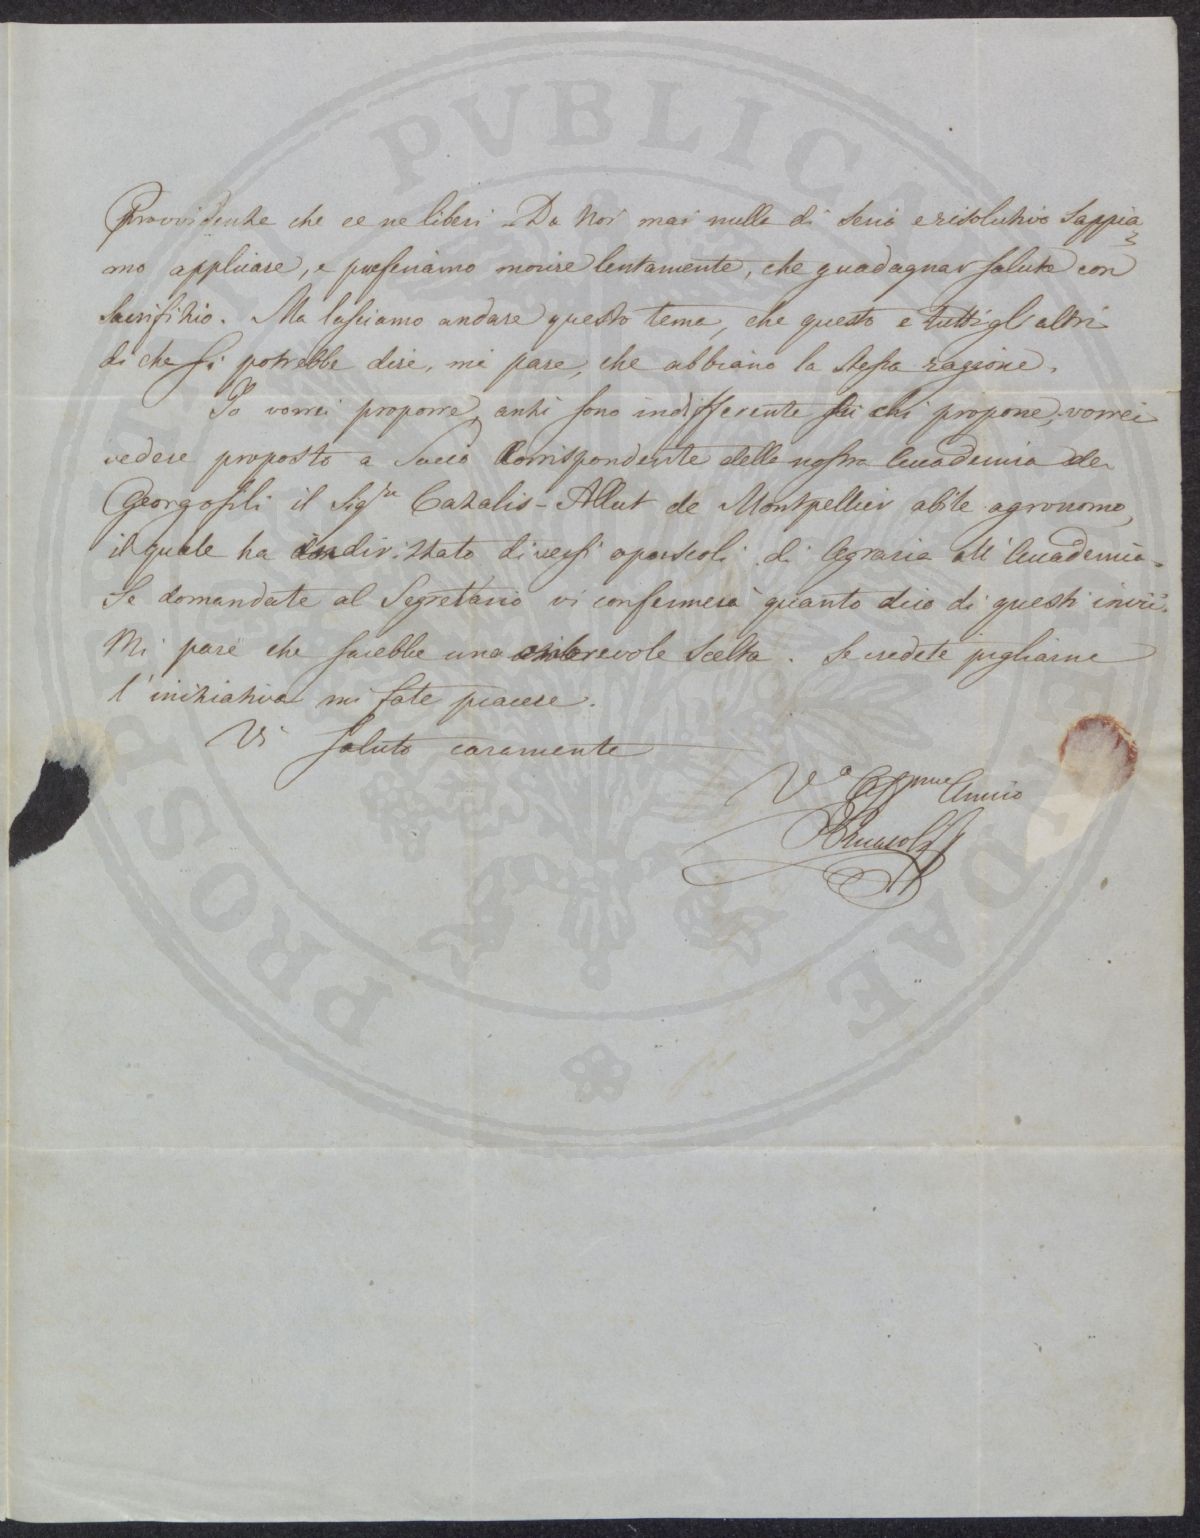 PROSPERITATI PVBLICAE AVGENDAE
Provvidenza che ce ne liberi - Da noi mai nulla di serio e risolutivo sappia=
mo applicare, e preferiamo morire lentamente, che guadagnar salute con
Sacrifizio. Ma lasciamo andare questo tema, che questo e tutti gl'altri
di che si potrebbe dire, mi pare, che abbiano la stessa ragione.
Io vorrei proporre, anzi sono indifferente su chi propone, vorrei
vedere proposto a Socio Corrispondente della nostra Accademia de
Georgofili il Sigre Cazalis-Allut de Montpellier abile agronomo,
il quale ha indirizzato diversi opuscoli di Agraria all'Accademia.
Se domandate al Segretario vi confermerà quanto dico di questi invii.
Mi pare che sarebbe una onorevole scelta. Se credete pigliarne
l'iniziativa mi fate piacere.
Vi saluto caramente
Vo Affmo Amico